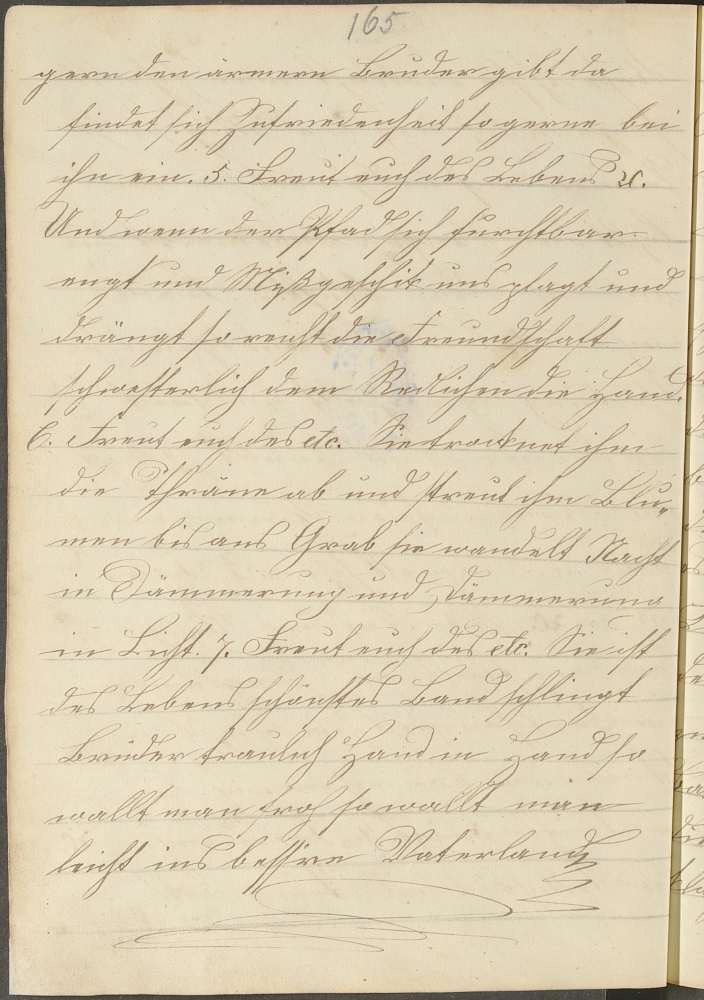 165
gern den ärmern Bruder gibt da
findet sich Zufriedenheit so gerne bei
ihn ein. 5. Freut euch des Lebens x.
Und wenn der Pfad sich furchtbar
engt und Mißgeschik uns plagt und
drängt so reicht die Freundschaft
schwesterlich dem Redlichen die Hand.
6. Freut euch des etc. Sie trocknet ihm
die Thräne ab und streut ihm Blu„
men bis ans Grab sie wandelt Nacht
in Dämmerung und Dämmerung
in Licht. 7. Freut euch des etc. Sie ist
des Lebens schönstes Band schlingt
Brüder traulich Hand in Hand so
wallt man froh so wallt man
leicht ins bessre Vaterland